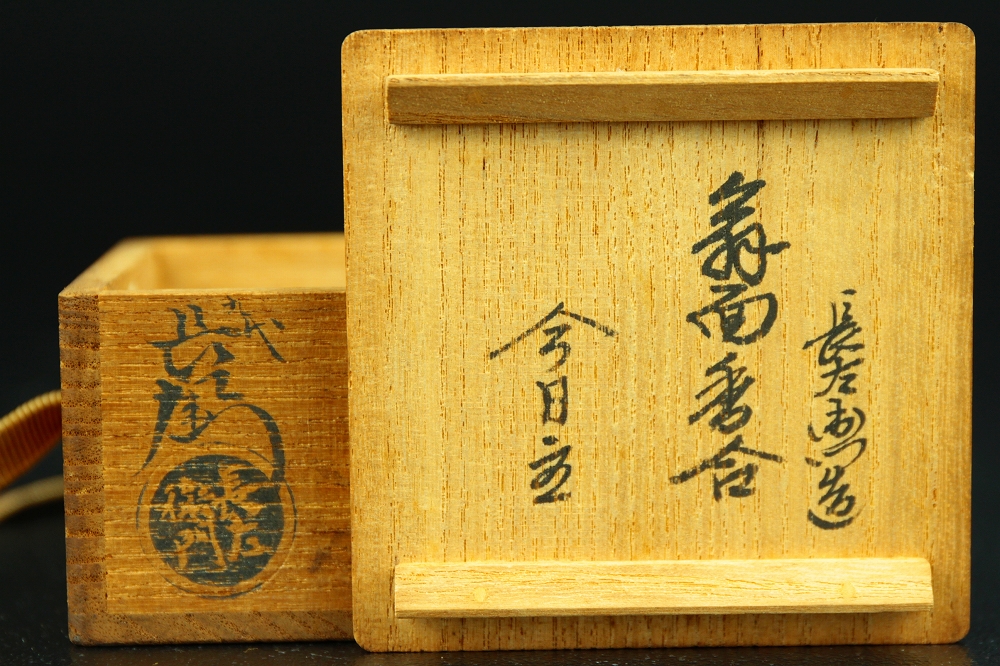 長左衛門造
翁面香合
今日
九代
長左衛門